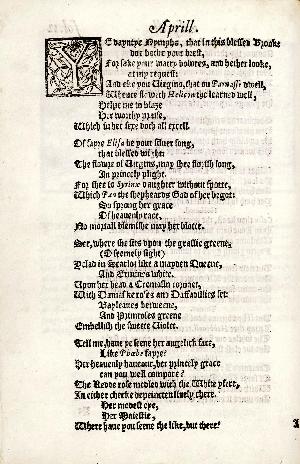 Aprill.
YE dayntye Nymphs, that in this blessed Brooke
doe bathe your brest,
Forsake your watry bowres, and hether looke,
at my request:
And eke you Virgins, that on Parnasse dwell,
Whence floweth Helicon the learned well,
Helpe me to blaze
Her worthy praise,
Which in her sexe doth all excell.
Of fayre Elisa be your silver song,
that blessed wight:
The flowre of Virgins, may shee florish long,
In princely plight.
For shee is Syrinx daughter without spotte,
Which Pan the shepheards God of her begot:
So sprong her grace
Of heavenly race,
No mortall blemishe may her blotte.
See, where she sits upon the grassie greene,
(O seemely sight)
Yclad in Scarlot like a mayden Queene,
And Ermines white.
Upon her head a Cremosin coronet,
With Damaske roses and Daffadillies set:
Bayleaves betweene,
And Primroses greene
Embellish the sweete Violet.
Tell me, have ye seene her angelick face,
Like Phœbe fayre?
Her heavenly haveour, her princely grace
can you well compare?
The Redde rose medled with the White yfere,
In either cheeke depeincten lively chere.
Her modest eye,
Her Majestie,
Where have you seene the like, but there?